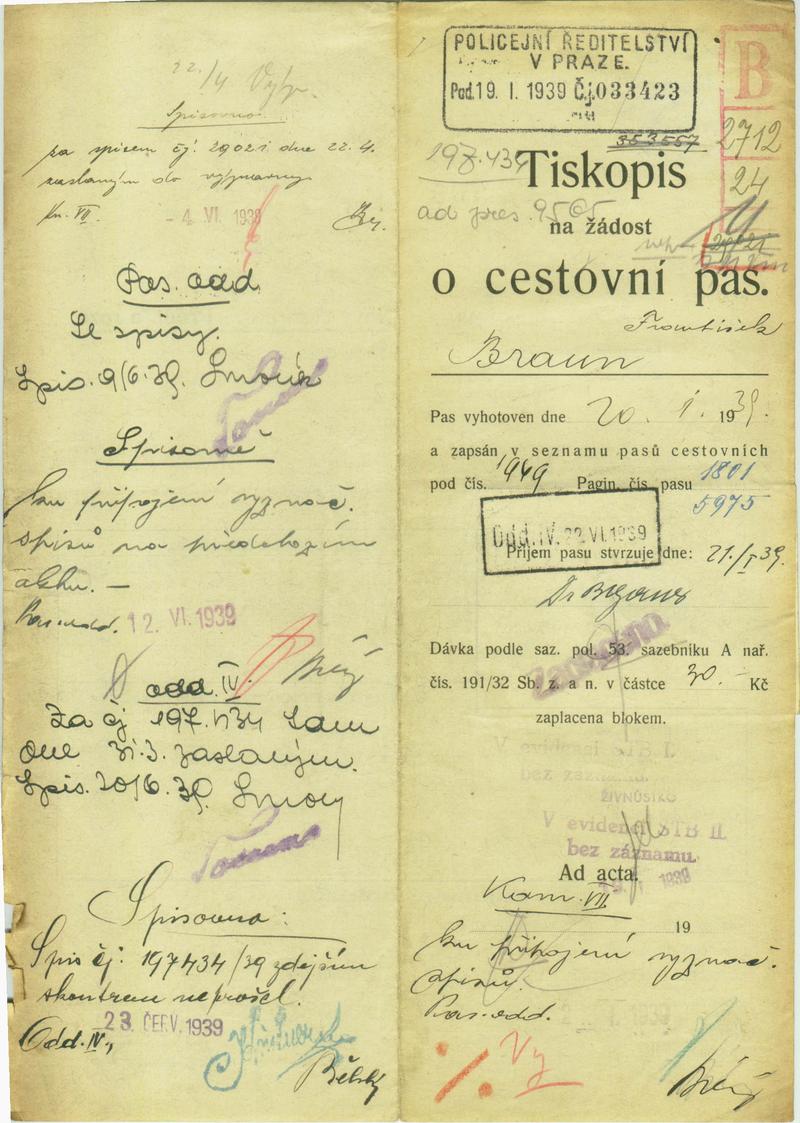 22./4
Spisovna
za spisem čj. 29021 dne 22.4.
zaslaným do výpravny
Kn. VII.
- 4. VI. 1939
Pas. odd.
Se spisy.
Spis. 9/6.39.
Spisovně
ku připojení vyznač.
spisů na předchozím
aktu. —
Pas. odd. 12. VI. 1939
odd. IV.
Za čj 197.434 tam
dne 31.3. zaslaným.
Spis. 20/6.39.
Spisovna:
Spis čj: 197434/39 zdejším
skontrem neprošel.
Odd. IV., 23. ČERV. 1939
Bělský
POLICEJNÍ ŘEDITELSTVÍ
V PRAZE.
Pod. 19. I. 1939 Čj. 033423
B
2712
24
353557
197.434
Tiskopis
ad pres. 9505
na žádost
o cestovní pas.
František
Braun
Pas vyhotoven dne 20. I. 1939.
a zapsán v seznamu pasů cestovních
pod čís. 1949 Pagin. čís. pasu 1801
5975
Odd. IV. 22. VI. 1939
Příjem pasu stvrzuje dne: 21./I 39.
Dávka podle saz. pol. 53. sazebníku A nař.
čís. 191/32 Sb. z. a n. v částce 30.- Kč
zaplacena blokem.
V evidenci STB I.
bez záznamu.
ŽIVNOSTKO
V evidenci STB II.
bez záznamu.
Ad acta.
1939
Kam. VII.
19
ku připojení vyznač.
spisů.
Pas. odd.